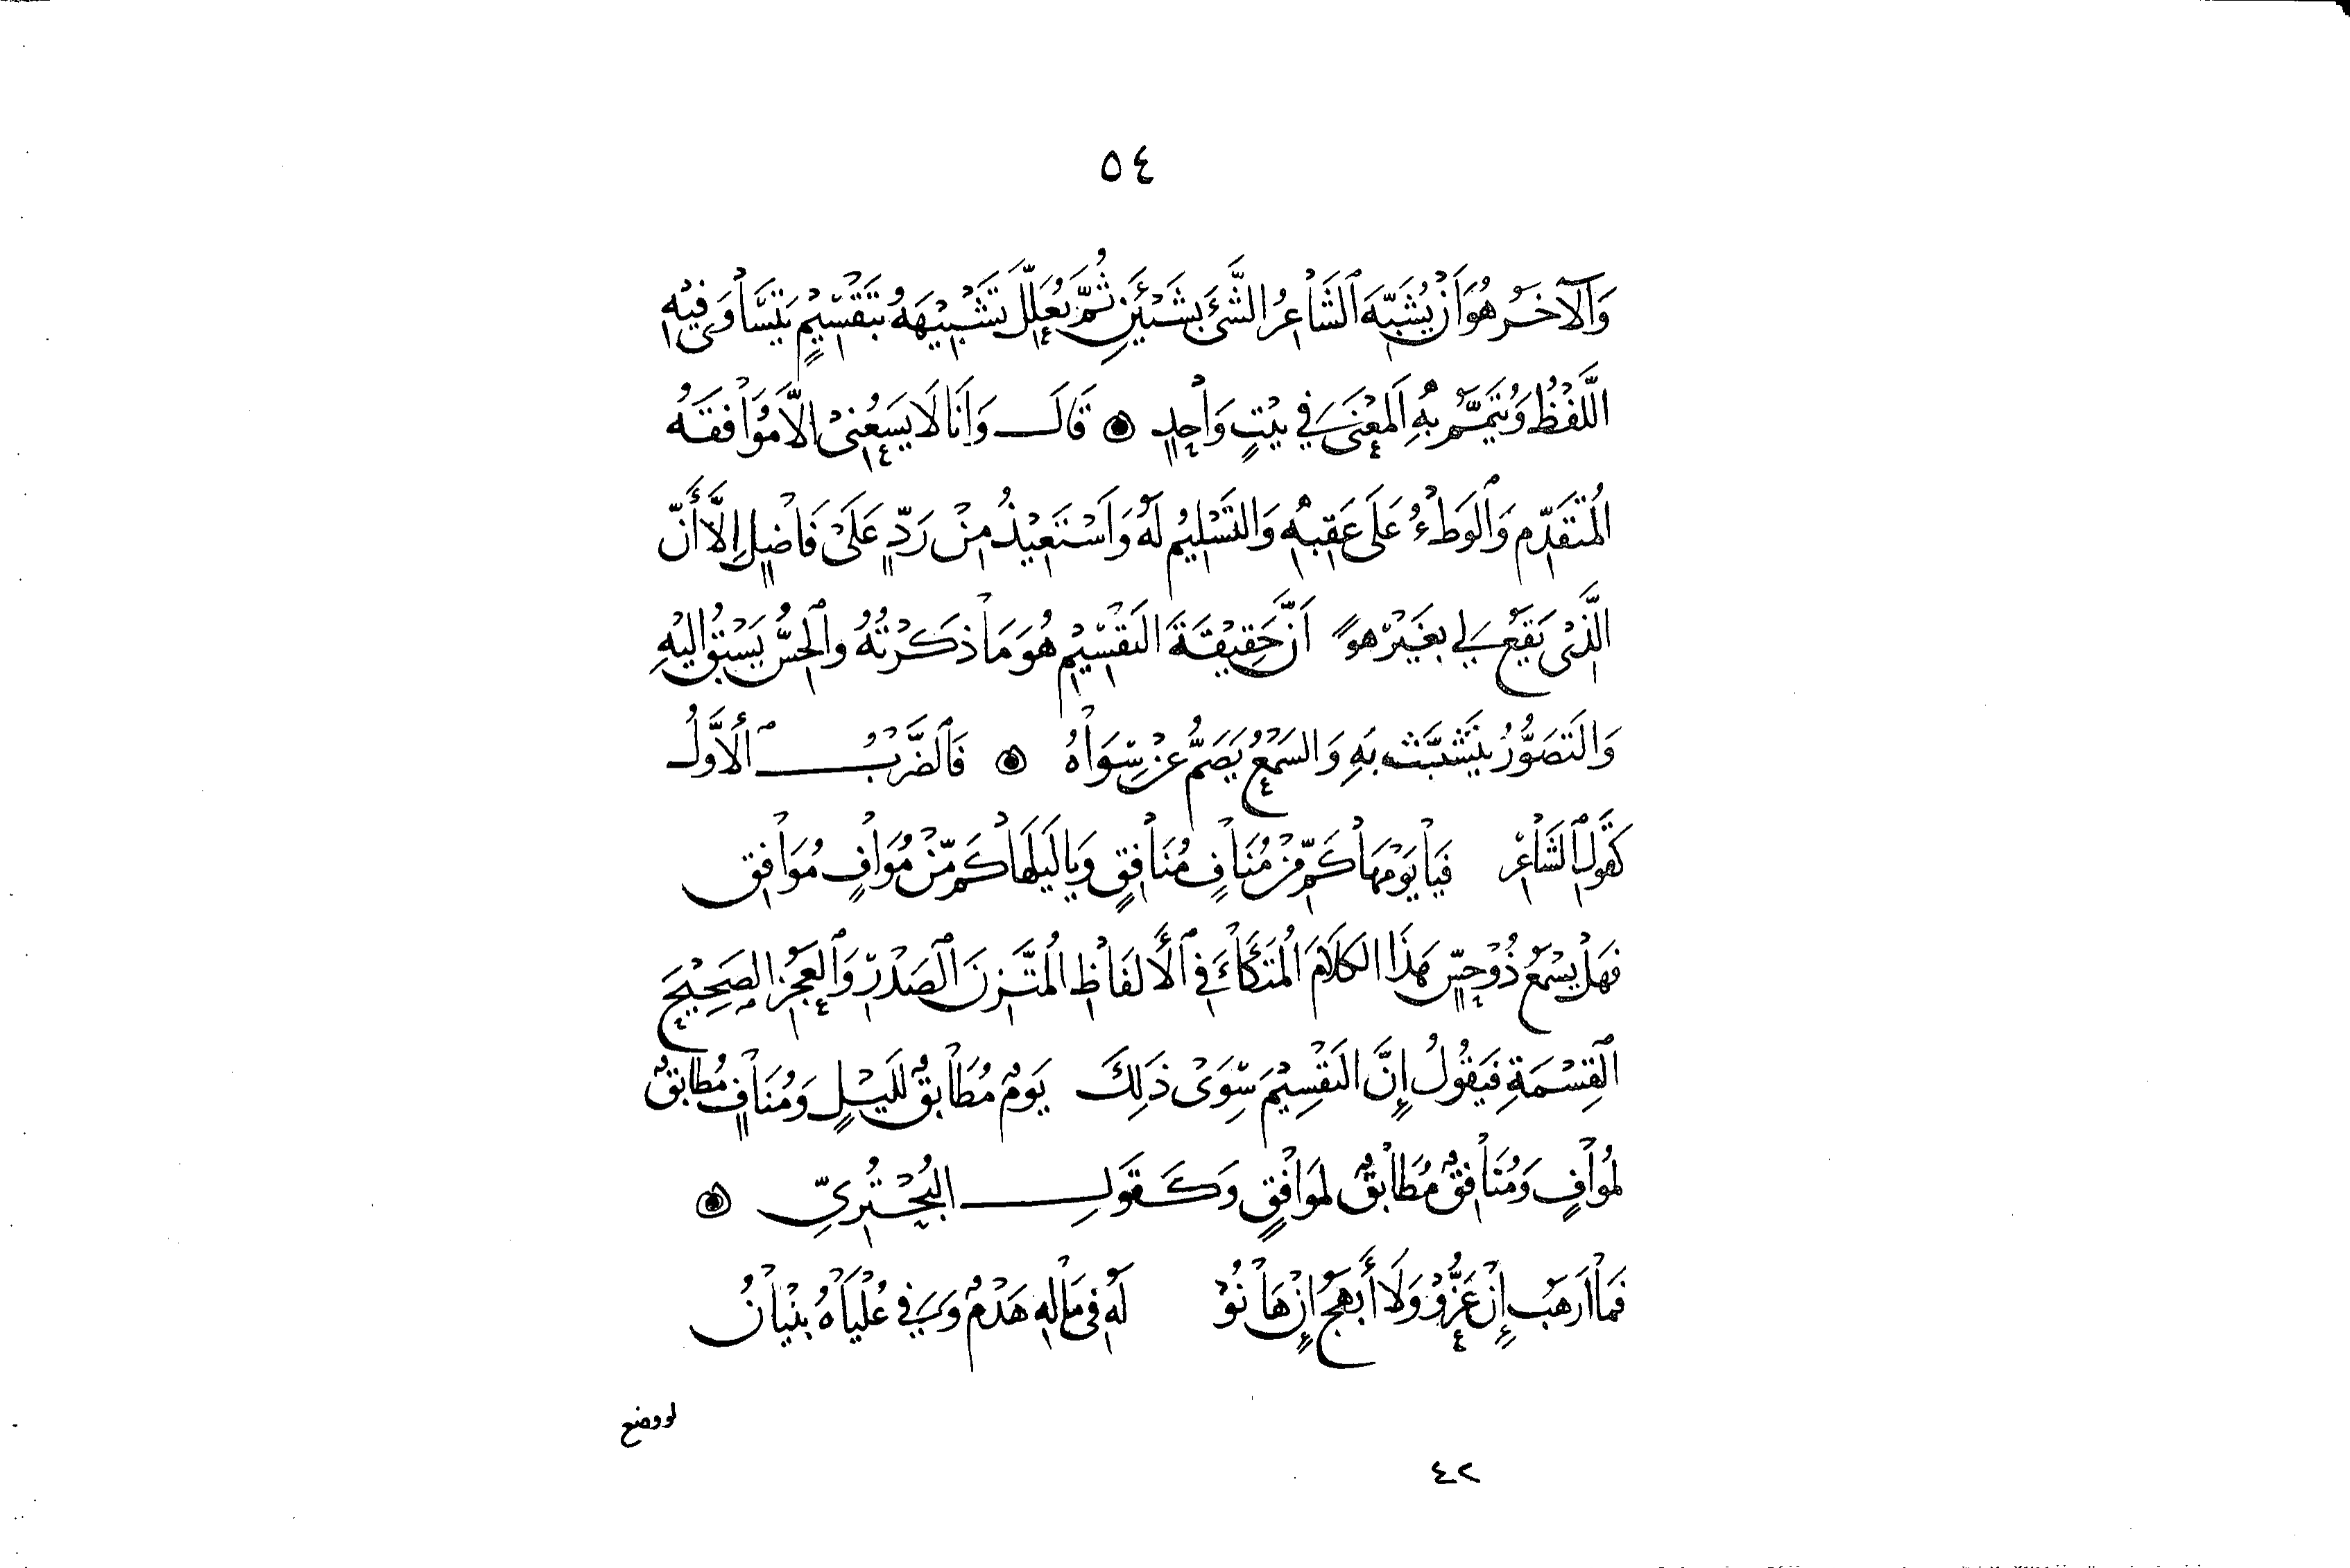 ٥٤
وَالآخَرُ هُوَ أَنْ يُشَبِّهَ الشَّاعِرُ الشَّيْءَ بِشَيْئَيْنِ ثُمَّ يُعَلِّلَ تَشْبِيهَهُ بِتَقْسِيمٍ يَتَسَاوَى فِيهِ
اللَّفْظُ وَيُتَمَّمُ بِهِ الْمَعْنَى فِي بَيْتٍ وَاحِدٍ ۞ قَالَ وَأَنَا لَا يَسَعُنِي إِلَّا مُوَافَقَةُ
الْمُتَقَدِّمِ وَالْوَطْءُ عَلَى عَقِبِهِ وَالتَّسْلِيمُ لَهُ وَأَسْتَعِيذُ مِنْ رَدٍّ عَلَى فَاضِلٍ إِلَّا أَنَّ
الَّذِي يَقَعُ لِي بِغَيْرِ هَوًى أَنَّ حَقِيقَةَ التَّقْسِيمِ هُوَ مَا ذَكَرْتُهُ وَالْحِسُّ يَسْبِقُ إِلَيْهِ
وَالتَّصَوُّرُ يَتَشَبَّثُ بِهِ وَالسَّمْعُ يَصَمُّ عَنْ سِوَاهُ ۞ فَالضَّرْبُ الْأَوَّلُ
كَقَوْلِ الشَّاعِرِ فَيَا يَوْمَهَا كَمْ مِنْ مُنَافٍ مُنَافِقٍ وَيَا لَيْلَهَا كَمْ مِنْ مُوَافٍ مُوَافِقِ
فَهَلْ يَسْمَعُ ذُو حِسٍّ هَذَا الْكَلَامَ الْمُتَكَافِئَ فِي الْأَلْفَاظِ الْمُتَّزِنَ الصَّدْرِ وَالْعَجُزِ الصَّحِيحَ
الْقِسْمَةِ فَيَقُولُ إِنَّ التَّقْسِيمَ سِوَى ذَلِكَ يَوْمٌ مُطَابِقٌ لِلَيْلٍ وَمُنَافٍ مُطَابِقٌ
لِمُوَافٍ وَمُنَافِقٌ مُطَابِقٌ لِمُوَافِقٍ وَكَقَوْلِ الْبُحْتُرِيِّ ۞
فَمَا أَرْهَبُ إِنْ عَزُّوْ وَلَا أَبْهَجُ إِنْ هَانُوْ لَهُ فِي مَالِهِ هَدْمٌ وَفِي عُلْيَاهُ بُنْيَانُ
لو وضع
٤٢